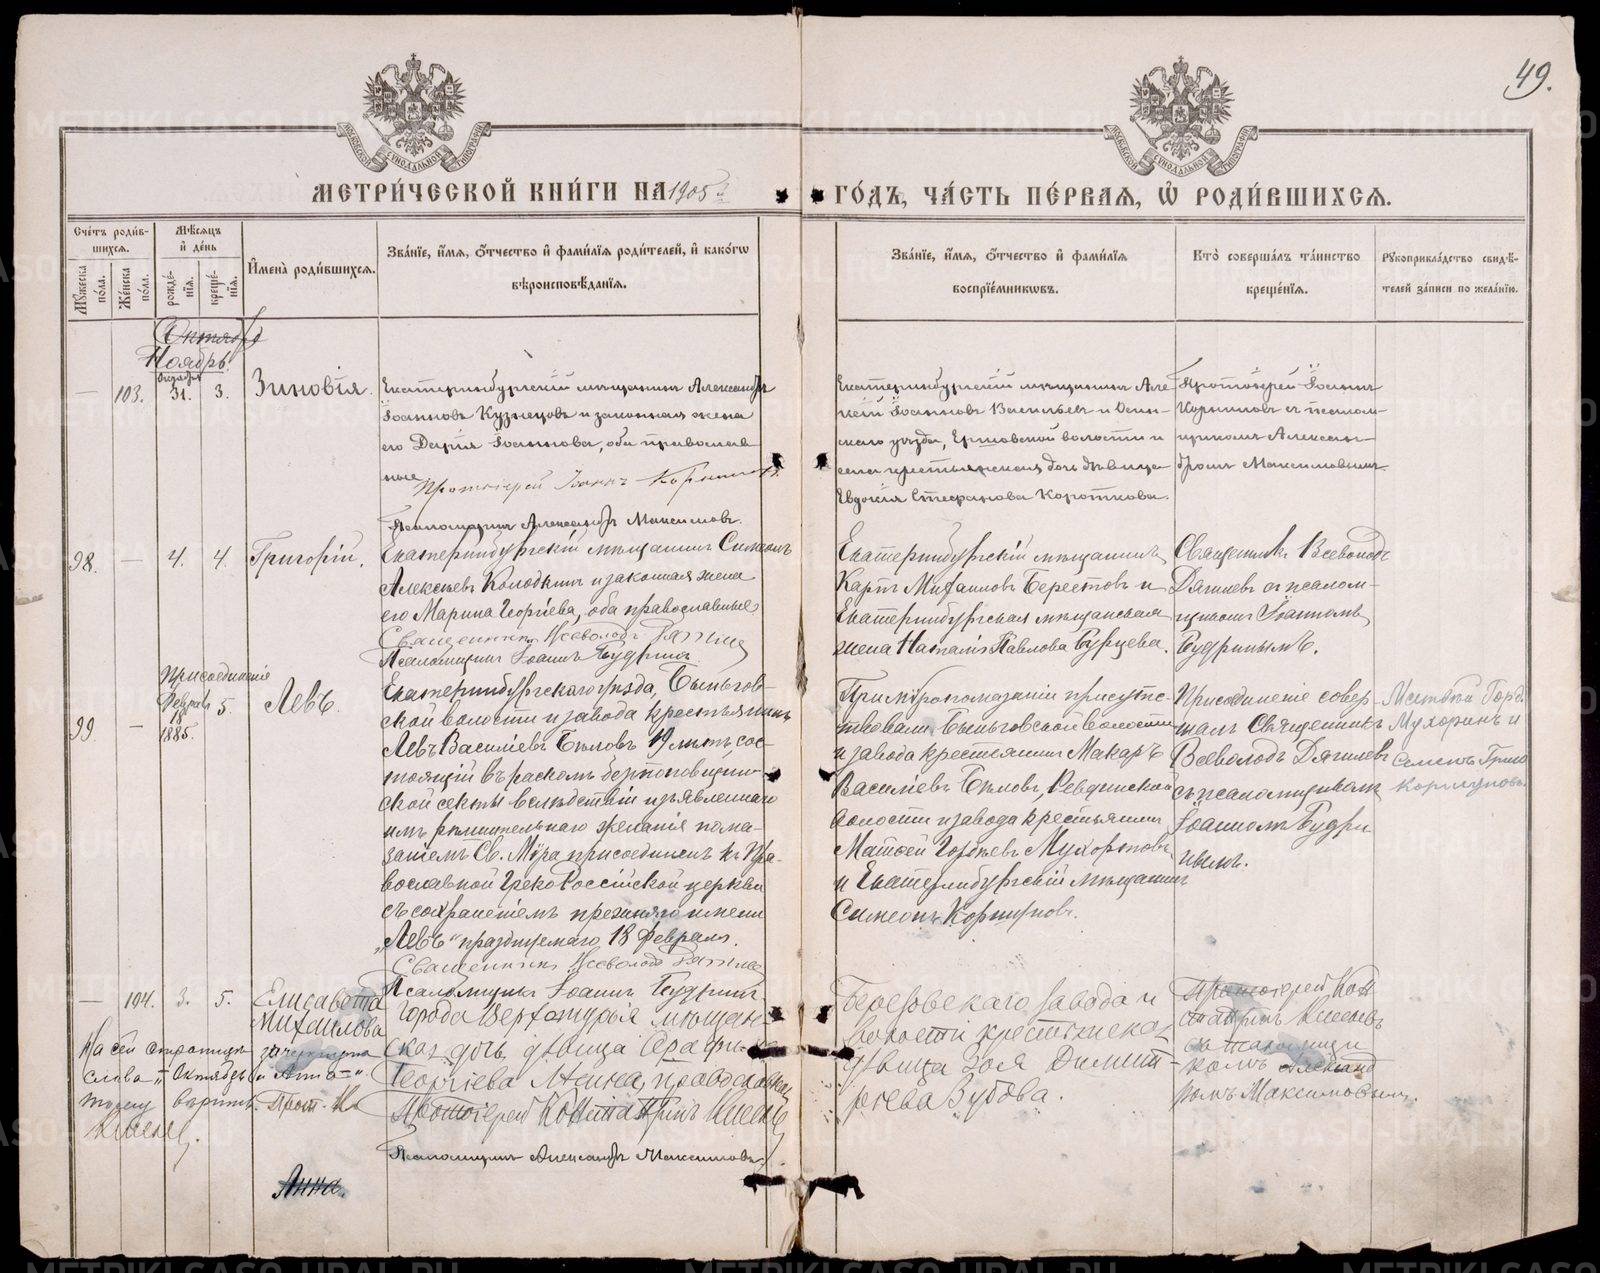 49.
МЕТРИ́ЧЕСКОЙ КНИ́ГИ НА 1905 й ГО́ДЪ, ЧА́СТЬ ПЕ́РВАЯ, Ѡ РОДИ́ВШИХСЯ.
Сче́тъ роди́в-
шихся.
Му́жеска по́ла.
Же́нска по́ла.
Мѣ́сяцъ
и҆ де́нь
рожде́-
нїя.
креще́-
нїя.
И҆мена̀ роди́вшихся.
Зва́нїе, и҆́мя, ѻ҆́тчество и҆ фами́лїя роди́телей, и҆ како́гѡ
вѣроисповѣ́данїя.
Зва́нїе, и҆́мя, ѻ҆́тчество и҆ фами́лїя
воспрїе́мникѡвъ.
Кто̀ соверша́лъ та́инство
креще́нїя.
Рꙋкоприкла́дство свидѣ́-
телей за́писи по жела́нїю.
Октябрь
Ноябрь.
— 103. Октября 31. 3. Зиновія.
Екатеринбургскій мѣщанинъ Александръ
Іоанновъ Кузнецовъ и законная жена
его Дарія Іоаннова, оба православ-
ные
Протоіерей Іоаннъ Корниловъ.
Псаломщикъ Александръ Максимовъ.
Екатеринбургскій мѣщанинъ Але-
ксѣй Іоанновъ Васильевъ и Осин-
скаго уѣзда, Ершовской волости и
села крестьянская дочь дѣвица
Евдокія Стефанова Короткова.
Протоіерей Іоаннъ
Корниловъ съ псалом-
щикомъ Алексан-
дромъ Максимовымъ.
98. — 4. 4. Григорій.
Екатеринбургскій мѣщанинъ Симеонъ
Алексѣевъ Колодкинъ и законная жена
его Марина Георгіева, оба православные
Священникъ Всеволодъ Дягилевъ
Псаломщикъ Іоаннъ Будринъ
Екатеринбургскій мѣщанинъ
Карпъ Михаиловъ Берестовъ и
Екатеринбургская мѣщанская
жена Наталія Павлова Бурцева.
Священникъ Всеволодъ
Дягилевъ съ псалом-
щикомъ Іоанномъ
Будринымъ.
Присоединенія
99. — Февраля 18 1885. 5. Левъ.
Екатеринбургскаго уѣзда, Быньгов-
ской волости и завода крестьянинъ
Левъ Василіевъ Бѣловъ, 19 лѣтъ, сос-
тоящій въ расколѣ
ской секты вслѣдствіи изъявленнаго
имъ рѣшительнаго желанія пома-
заніемъ Св. Мѵра присоединенъ къ Пра-
вославной Греко Россійской церкви
съ сохраненіемъ прежняго имени
„Левъ" празднуемаго 18 февраля.
Священникъ Всеволодъ Дягилевъ
Псаломщикъ Іоаннъ Будринъ
При мѵропомазаніи присутс-
твовали: Быньговской волости
и завода крестьянинъ Макаръ
Василіевъ Бѣловъ, Ревдинской
волости и завода крестьянинъ
Матѳей Гордѣевъ Мухоринъ
и Екатеринбургскій мѣщанинъ
Симеонъ Коршуновъ.
Присоединеніе совер-
шалъ Священникъ
Всеволодъ Дягилевъ
съ псаломщикомъ
Іоанномъ Будри-
нымъ.
Матвѣй Горд.
Мухоринъ и
Семенъ
Коршуновъ.
— 104. 3. 5. Елисавета
Михаилова
города Верхотурья мѣщан-
ская дочь, дѣвица Серафима
Георгіева православная
Протоіерей
Псаломщикъ Александръ Максимовъ.
Березовскаго завода и
волости крестьянская
дѣвица Зоя Димит-
ріева Зубова.
Протоіерей
съ псаломщи-
комъ Александ-
ромъ Максимовымъ.
На сей страницѣ зачеркнута
слова „Октябрь и Анна".
вѣрить. Прот.
Анна.